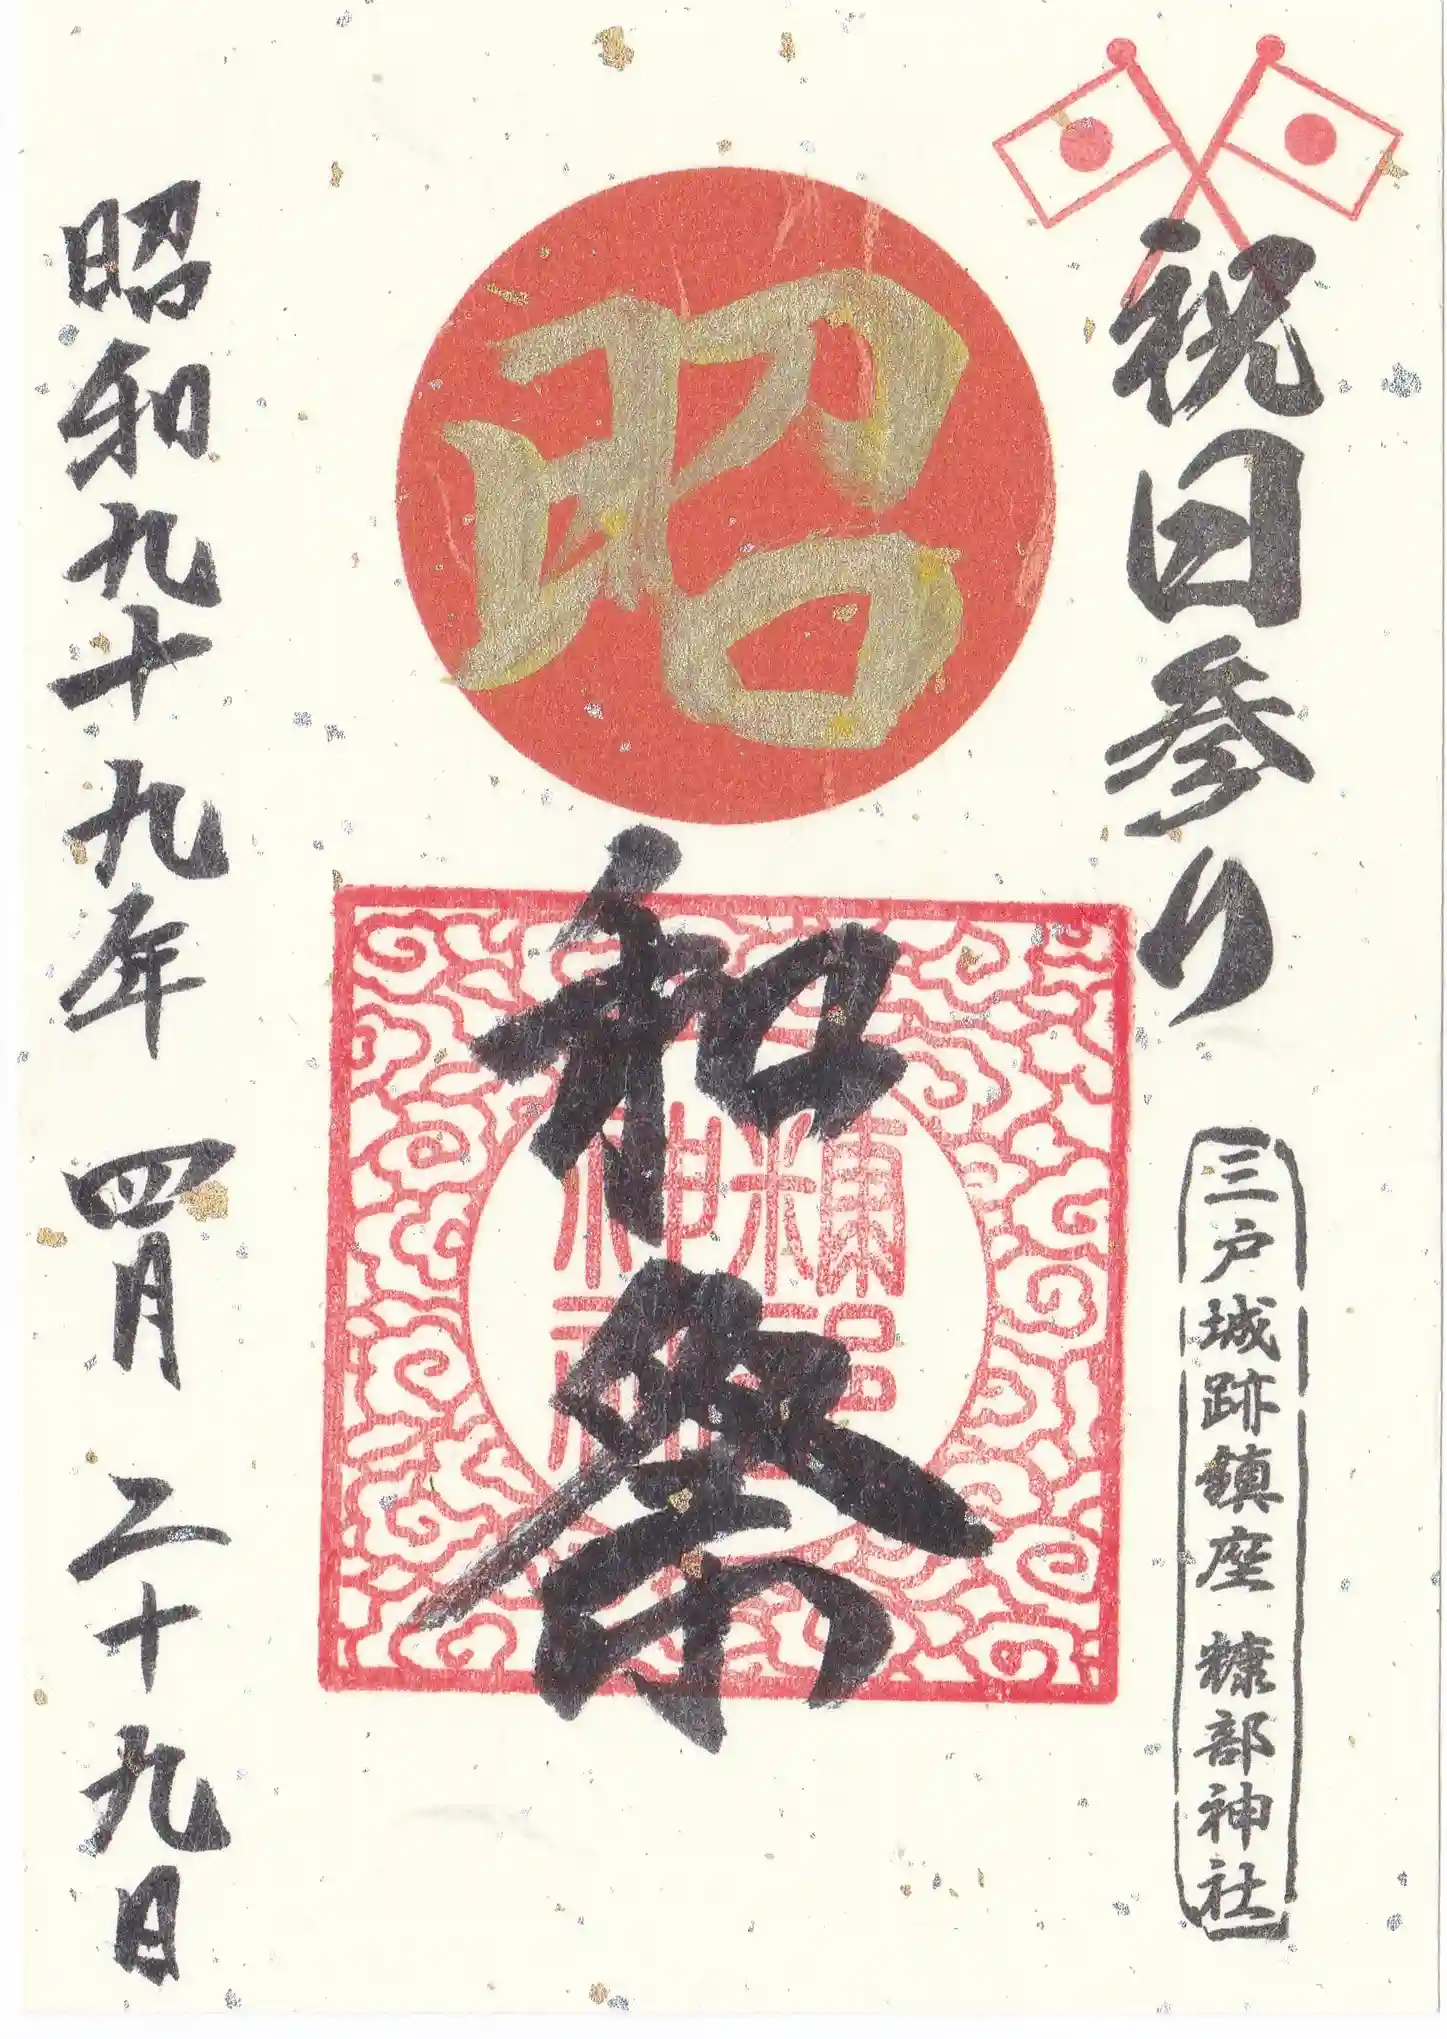 祝日参り
三戸城跡鎮座 糠部神社
昭和祭
糠部
神社
昭和九十九年 四月 二十九日